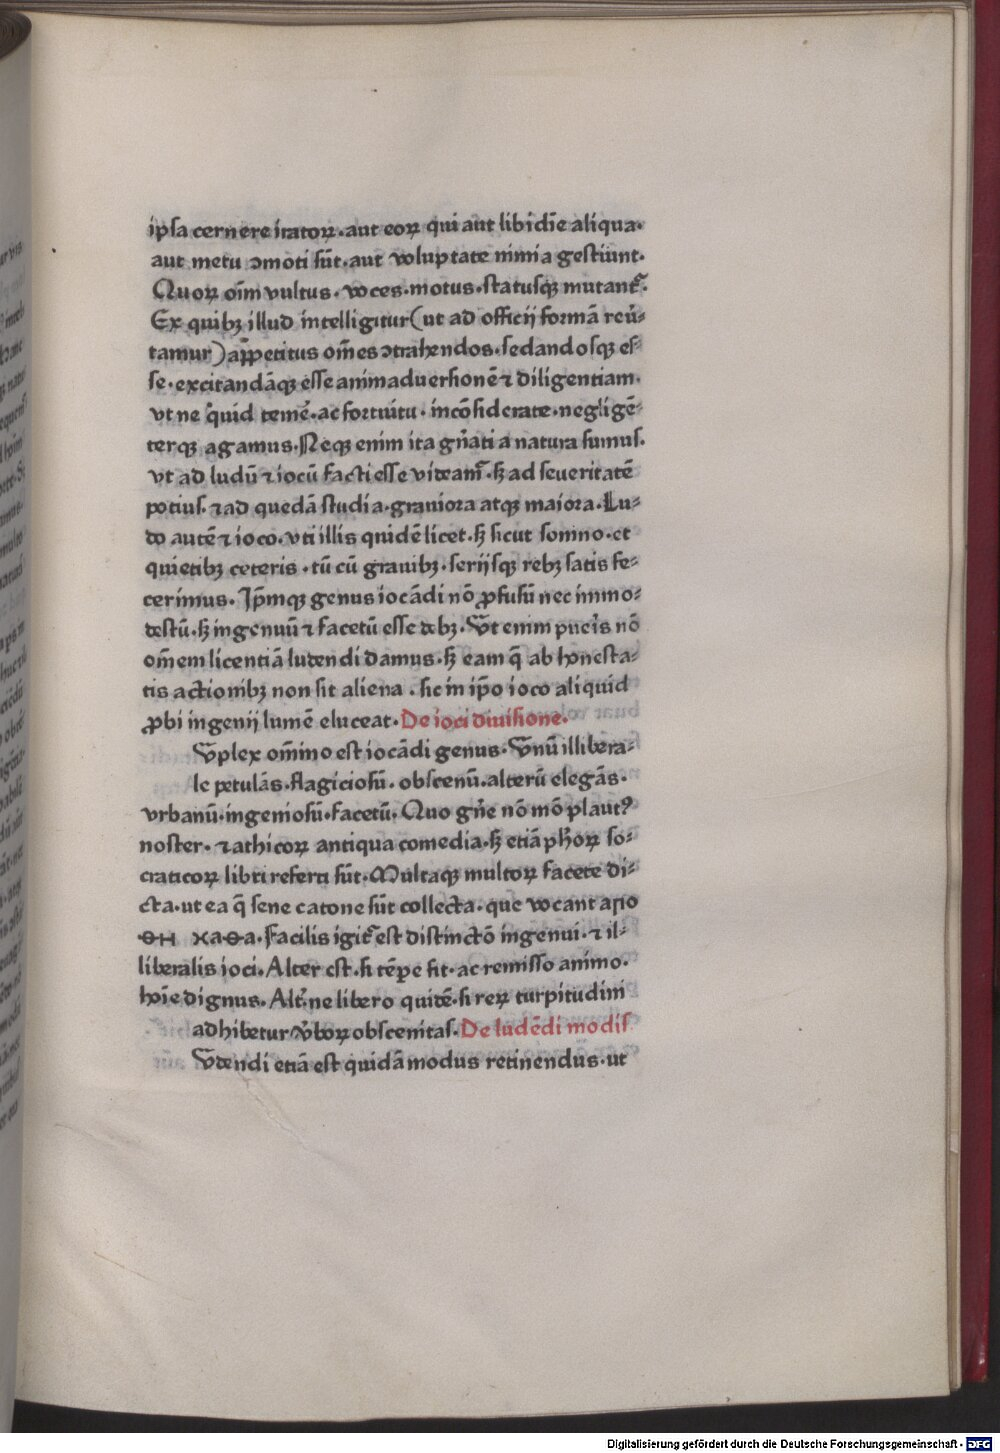 ipsa cernere iratoꝝ. aut eoꝝ qui aut libidīe aliqua.
aut metu ↄmoti sūt. aut voluptate nimia gestiunt.
Quoꝝ oīm vultus. voces. motus. statusqꝫ mutant᷑.
Ex quibꝫ illud intelligitur (ut ad officij formā reūͣ-
tamur) aꝑpetitus om̄es ↄtrahendos. sedandosqꝫ es-
se. excitandāqꝫ esse animaduersionē ⁊ diligentiam.
vt ne quid temē. ac fortuitu. incōsiderate. negligē-
terqꝫ agamus. Neqꝫ enim ita gn̄ati a natura sumus.
vt ad ludū ⁊ iocū facti esse videam᷑. sꝫ ad seueritatē
potius. ⁊ ad quedā studia. grauiora atqꝫ maiora. Lu-
do autē ⁊ ioco. vti illis quidē licet. sꝫ sicut somno. et
quietibꝫ ceteris. tū cū grauibꝫ. serijsqꝫ rebꝫ satis fe-
cerimus. Ip̄mqꝫ genus iocādi nō ꝓfusū nec immo-
destū. sꝫ ingenuū ⁊ facetū esse debꝫ. Vt enim pueris nō
om̄em licentiā ludendi damus. sꝫ eam q̄ ab honesta-
tis actionibꝫ non sit aliena. sic in ip̄o ioco aliquid
ꝓbi ingenij lumē eluceat. De ioci diuisione.
Vplex om̄ino est iocādi genus. Vnū illibera-
le petulās. flagiciosū. obscenū. alterū elegās.
vrbanū. ingeniosū. facetū. Quo gn̄e nō mō plautꝰ
noster. ⁊ athicoꝝ antiqua comedia. sꝫ etiā ph̄oꝝ so-
craticoꝝ libri referti sūt. Multaqꝫ multoꝝ facete di-
cta. ut ea q̄ sene catone sūt collecta. que vocant aпo
ΘH xaΘa. Facilis igit᷑ est distinctō ingenui. ⁊ il-
liberalis ioci. Alter est. si tēpe fit. ac remisso animo.
hoīe dignus. Alt᷑. ne libero quidē. si reꝝ turpitudini
adhibetur v̓boꝝ obscenitas. De ludēdi modis
Vdendi etiā est quidā modus retinendus. ut
Digitalisierung gefördert durch die Deutsche Forschungsgemeinschaft - DFG